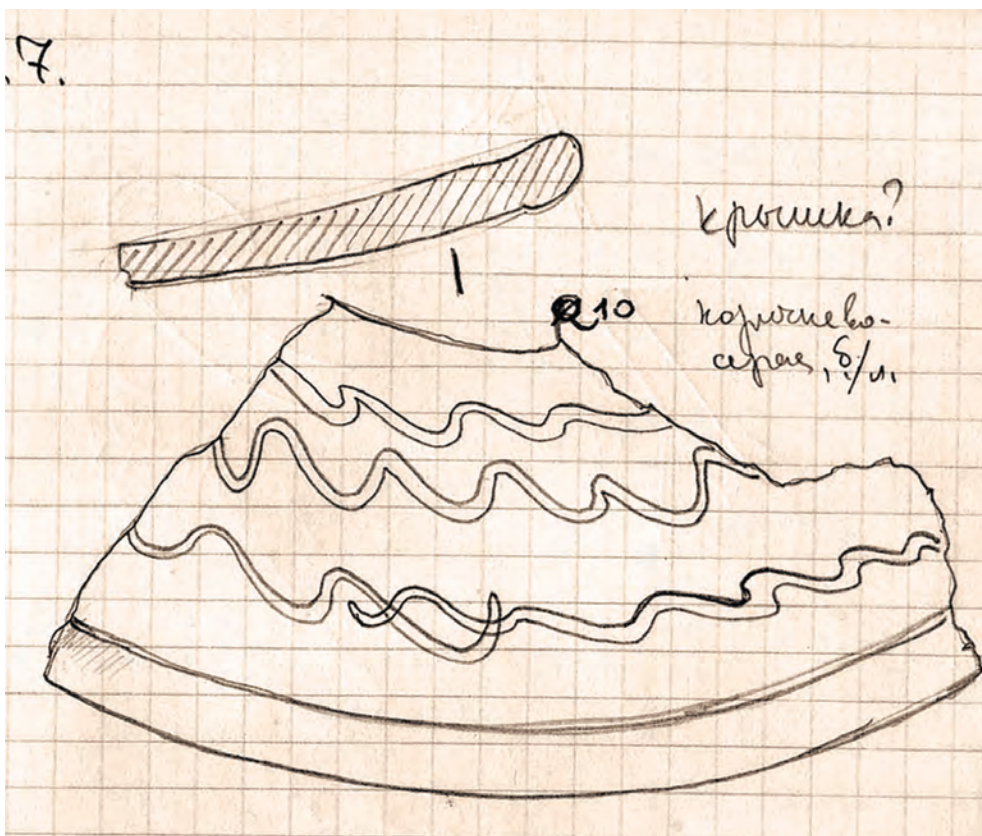 .7.
крышка?
R10
коричнево-
серая, б/л.